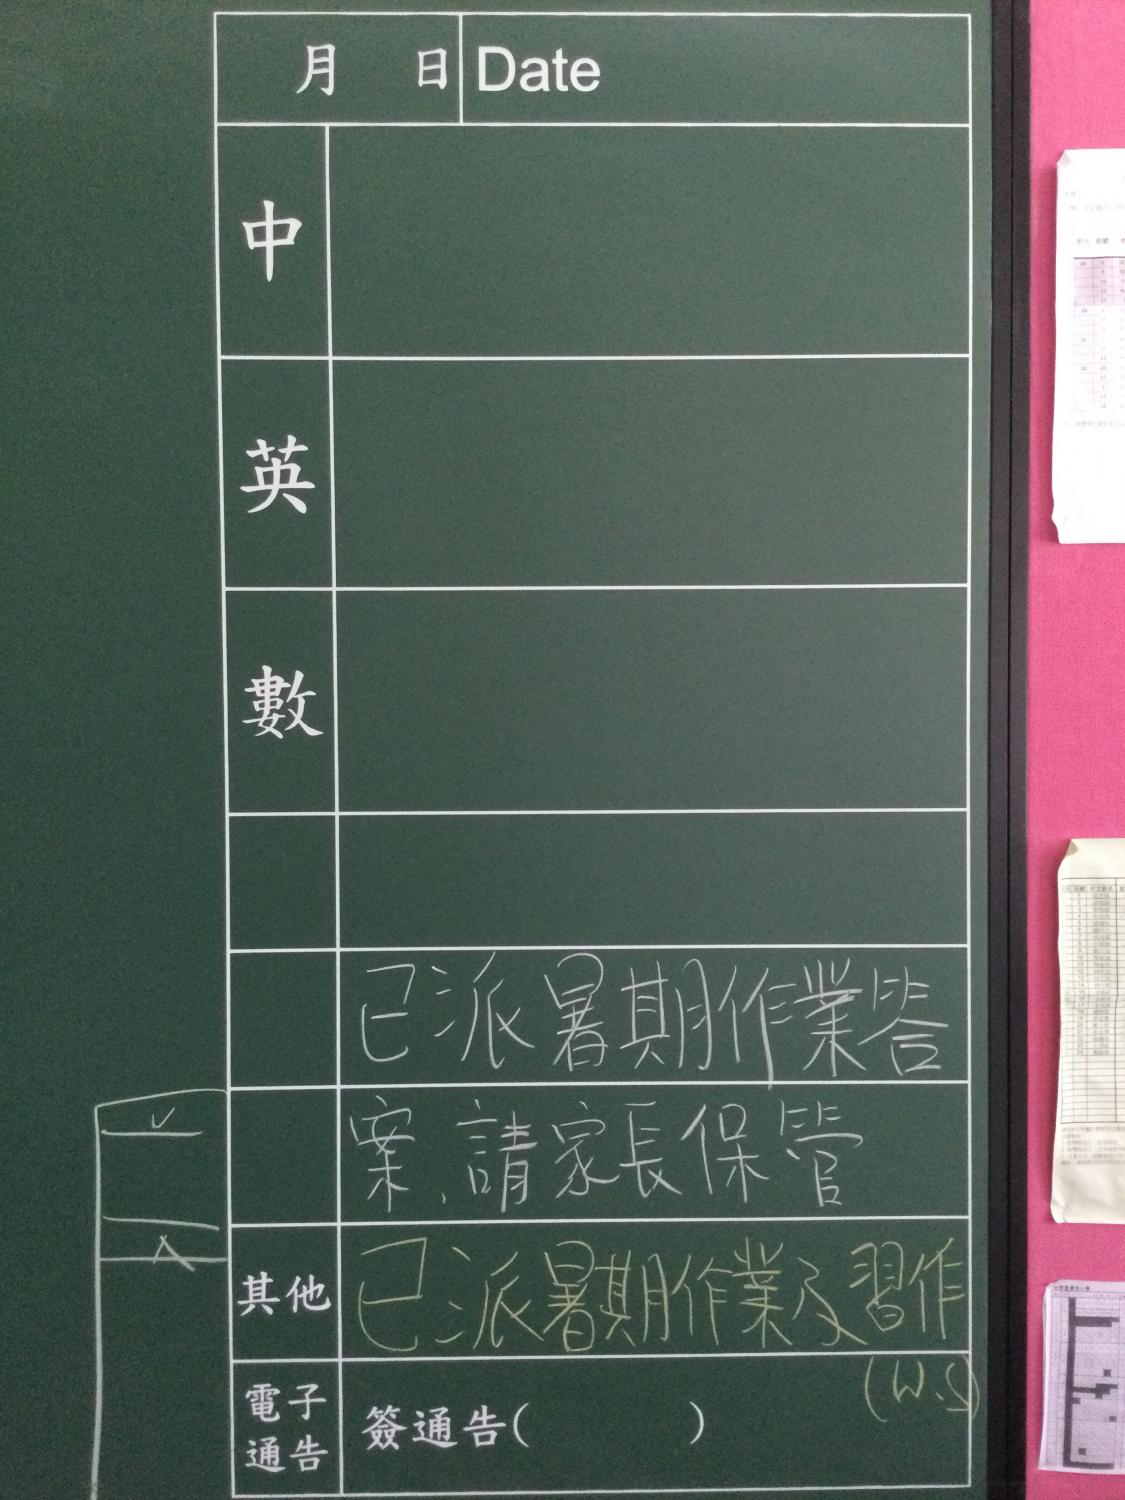 月 日 Date
中
英
數
已派暑期作業答
案，請家長保管
其他 已派暑期作業及習作
(W.S)
電子
通告 簽通告( )